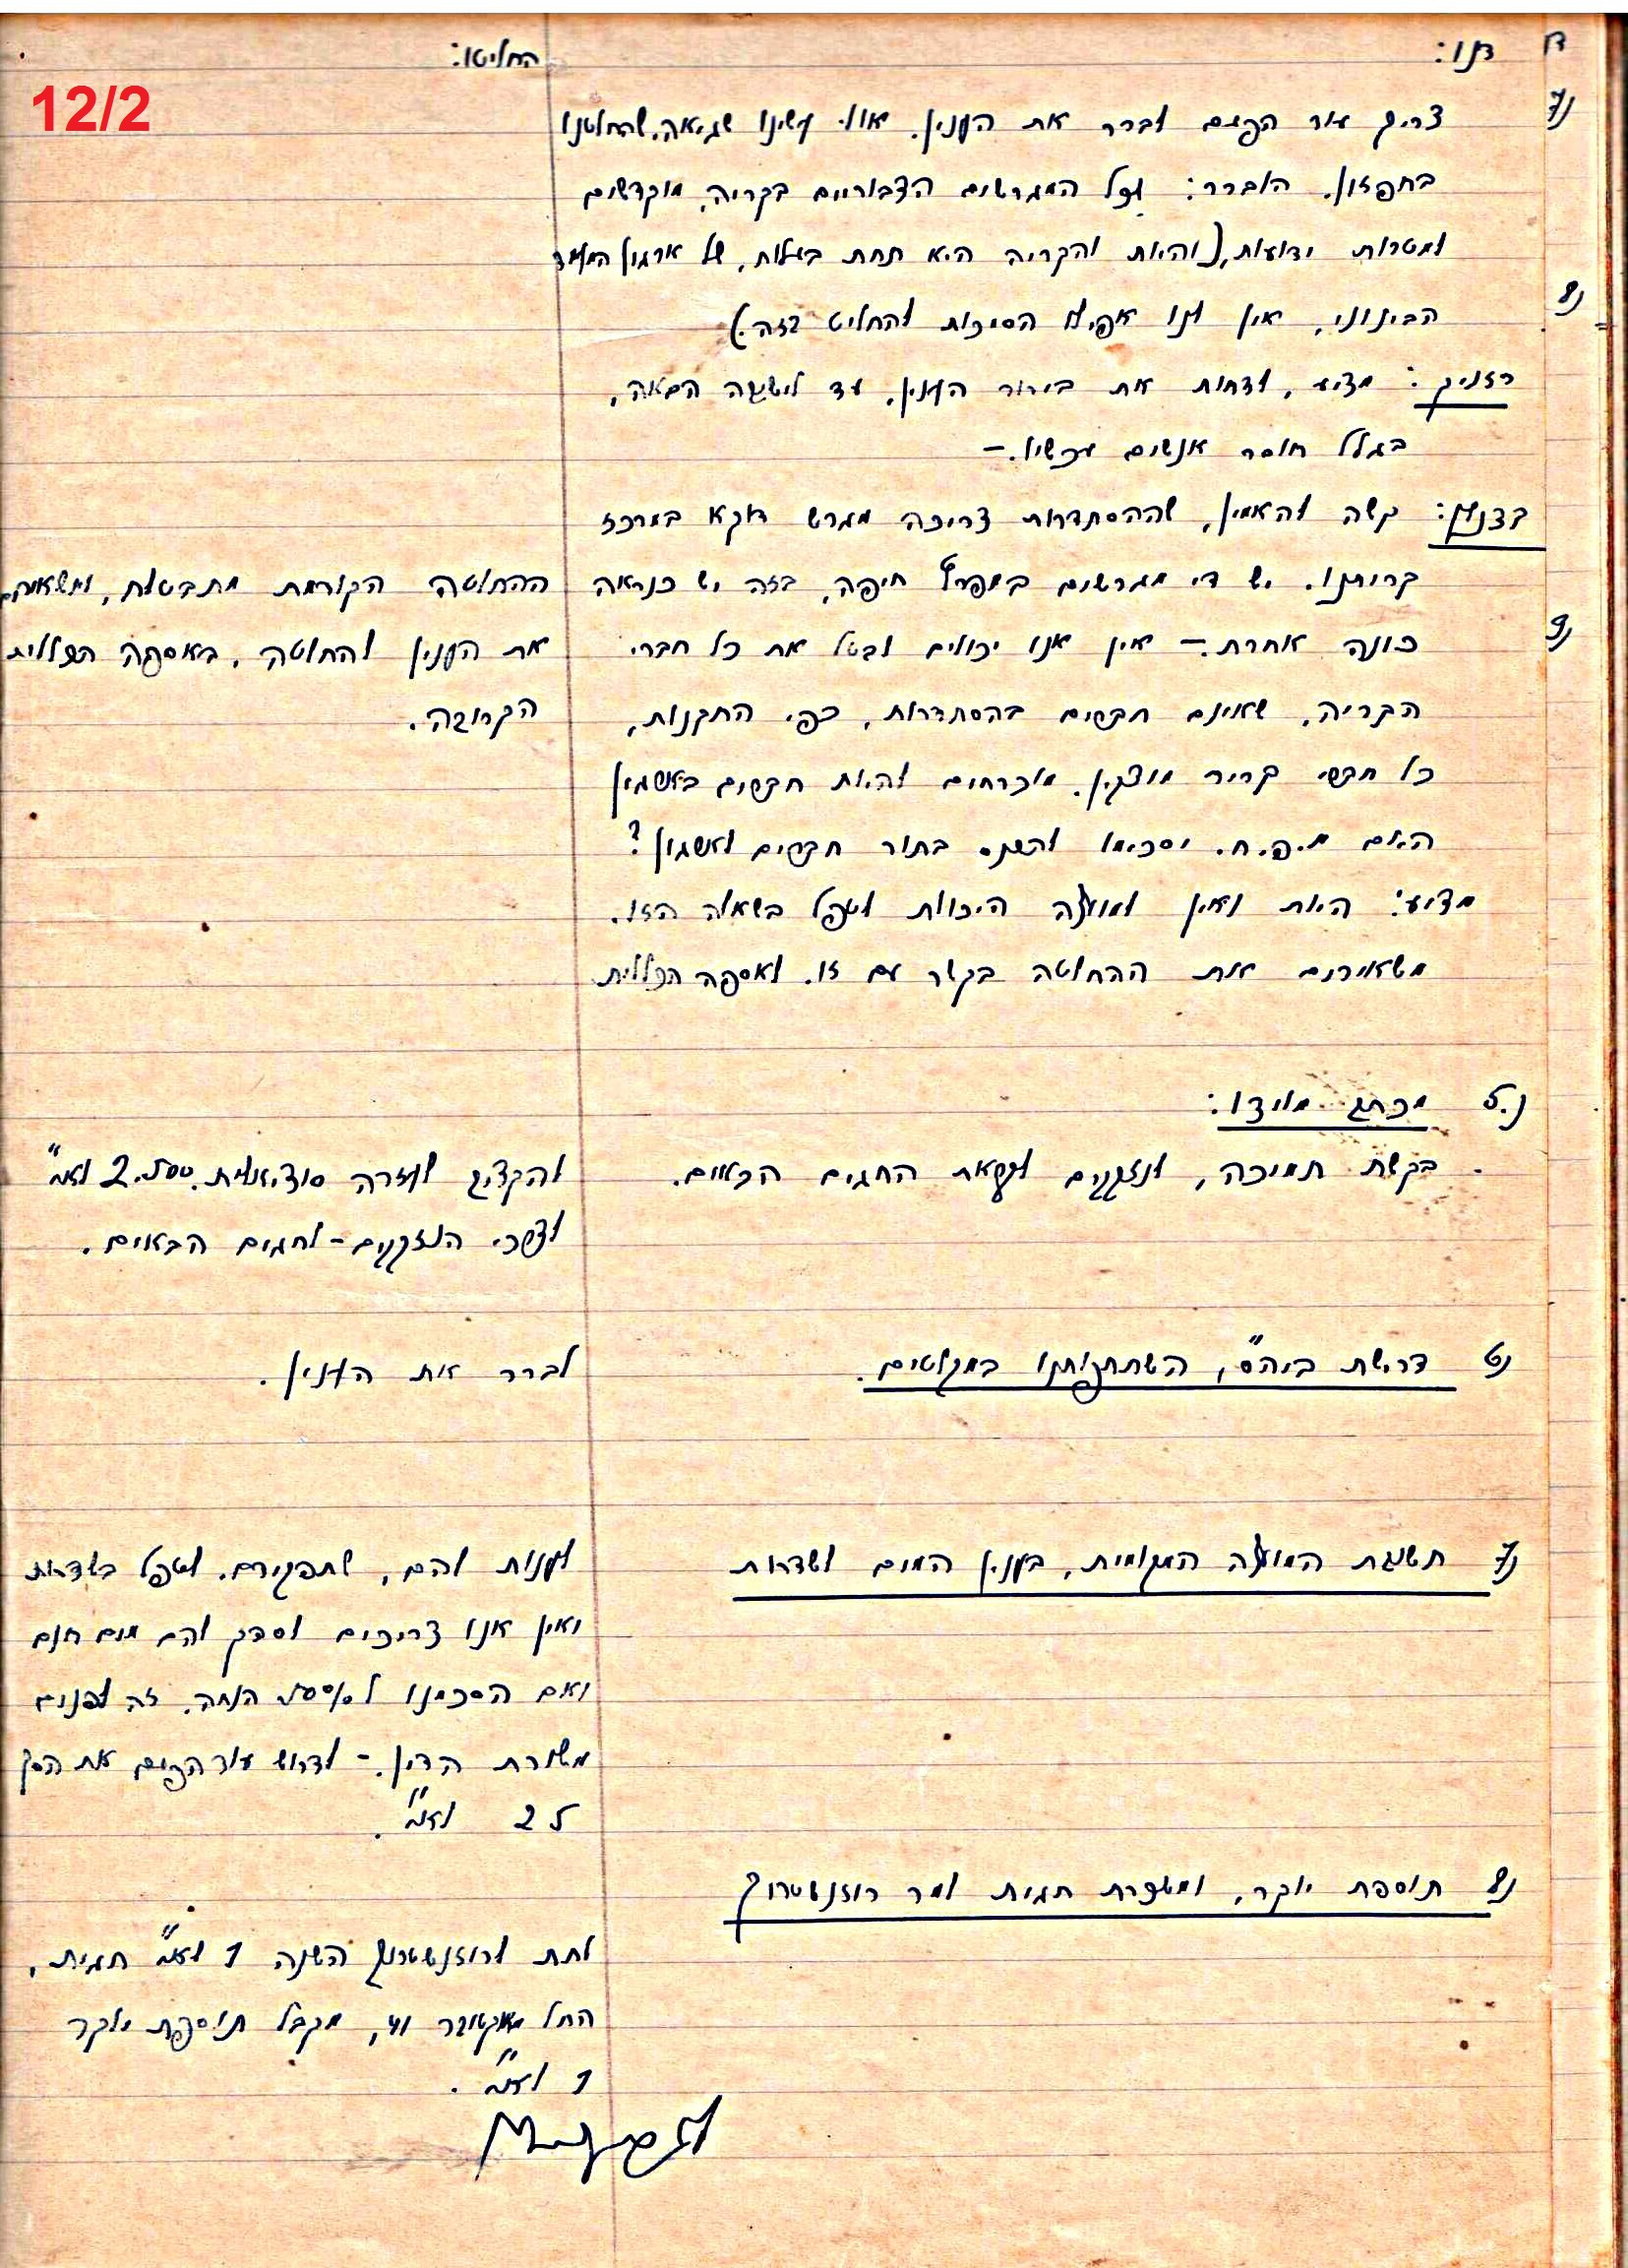 דנו:
החליטו:
12/2
צריך עוד הפעם לברר את הענין. אולי עשינו שגיאה, שהחלטנו
בחפזון. הוברר: וכל המגרשים הצבוריים בקריה, מוקדשים
למטרות ידועות, (והיות והקריה היא תחת בעלות, של ארגון המעמד
הבינוני, אין לנו אפילו הסיכות להחליט בזה.)
רזניק: מציע, לדחות את בירור הענין, עד לישיבה הבאה,
בגלל חוסר אנשים עכשיו.-
קשה להאמין, שההסתדרות צריכה מגרש דוקא במרכז
קריתנו. יש די מגרשים במפרץ חיפה, בזה יש כנראה
כונה אחרת.- אין אנו יכולים לבטל את כל חברי
הקריה, שאינם חברים בהסתדרות, כפי התקנות,
כל חברי קרית מוצקין, מוכרחים להיות חברים באשגוין
האם מ.פ.ח. יסכימו להכנס בתור חברים לאשגון?
מציע: היות ואין לועדה היכולת לטפל בשאלה הזו.
משאירים את ההחלטה בקשר עם זו. לאספה הכללית
ההחלטה הקודמת מתבטלת, ומשאירים
את הענין להחלטה, באספה הכללית
הקרובה.
נ.5 מכתב מוידו:
בקשת תמיכה, לנזקקים לקראת החגים הבאים.
להקציב לעזרה סוציאלית 2.500 לא"י
לצרכי הנזקקים - לחגים הבאים.
נ6 דרישת ביה"ס, השתתפותנו במקלטים.
לברר את הענין.
נ7 תשובת המועצה המקומית, בענין המים לשדרות
לענות להם, שתפקידם, לטפל בשדרות
ואין אנו צריכים לספק להם מים חנם
ואם הסכמנו ל 50% הנחה, זה לפנים
משורת הדין.- לדרוש עוד הפעם את הסך
ל 2 לא"י.
נ8 תוספת יוקר, ומשכרת חגית למר רוזנשטרוך
לתת לרוזנשטרוך השנה 1 לא"י חגית,
החל מאוקטובר והל, מקבל תוספת יוקר
1 לא"י.